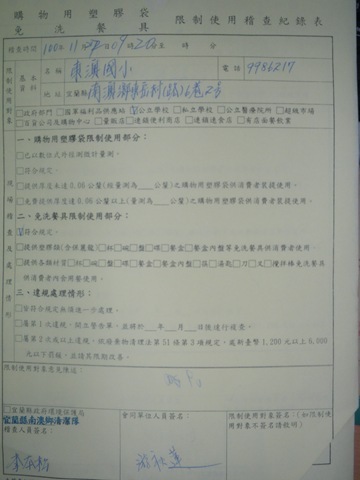 購物用塑膠袋
免洗餐具
限制使用稽查紀錄表
稽查時間 100年11月22日09時20分至 時 分
限制使用對象
基本資料
名稱 東澳國小
電話 9986217
地址 宜蘭縣南澳鄉東岳村
□政府部門 □國軍福利品供應站 ☑公立學校 □私立學校 □公立醫療院所 □超級市場
□百貨公司及購物中心 □量販店 □連鎖便利商店 □連鎖速食店 □有店面餐飲業
現場稽查及處理情形
一、購物用塑膠袋限制使用部分：
☑符合規定。
□提供厚度未達0.06公釐(經量測為____公釐)之購物用塑膠袋供消費者裝提使用。
□免費提供厚度0.06公釐以上(量測為____公釐)之購物用塑膠袋供消費者裝提使用。
二、免洗餐具限制使用部分：
☑符合規定。
□提供塑膠類(含保麗龍)□杯□碗□盤□碟□餐盒□餐盒內盤等免洗餐具供消費者使用。
□提供各類材質□杯□碗□盤□碟□餐盒□餐盒內盤□筷□湯匙□刀□叉□攪拌棒免洗餐具
供消費者內食用餐使用。
三、違規處理情形：
□皆符合規定無須進一步處理。
□屬第1次違規，開立警告單，並將於____年____月____日後進行複查。
□屬第2次或以上違規，依廢棄物清理法第51條第3項規定，處新臺幣1,200元以上6,000
元以下罰鍰，並請其限期改善。
限制使用對象意見陳述：
□宜蘭縣政府環境保護局
宜蘭縣南澳鄉清潔隊
稽查人員簽名：
會同單位人員簽名：
限制使用對象簽名：(如限制使
用對象不簽名請敘明)